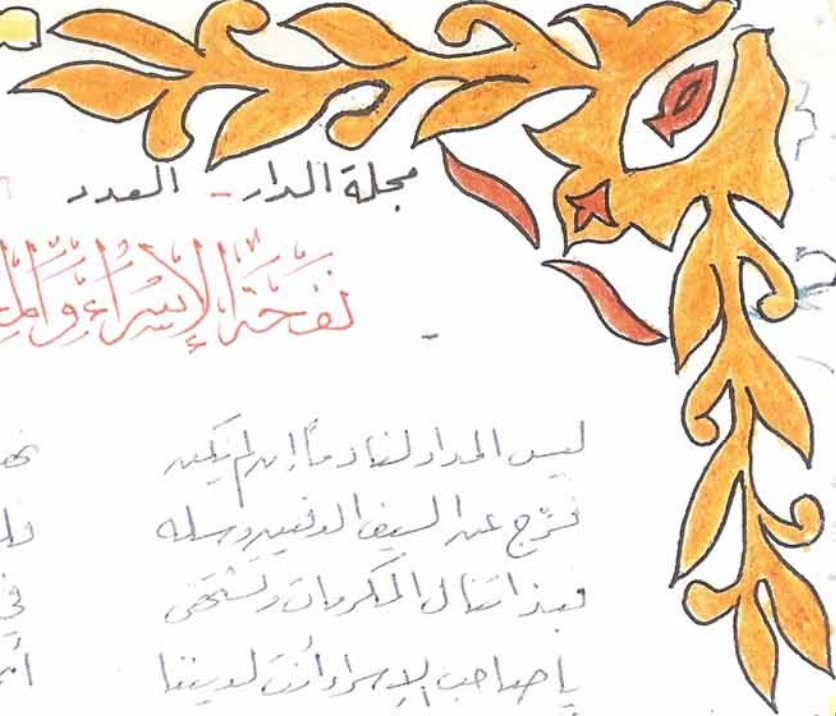 مجلة الدار - العدد
نفحة الإسراء و
ليس المداد لنا دماً إن لم يكن
فرّج عن السيف الدفين وسله
فبذا تنال المكرمات وتشتفى
يا صاحب الإسراء أنت لديننا